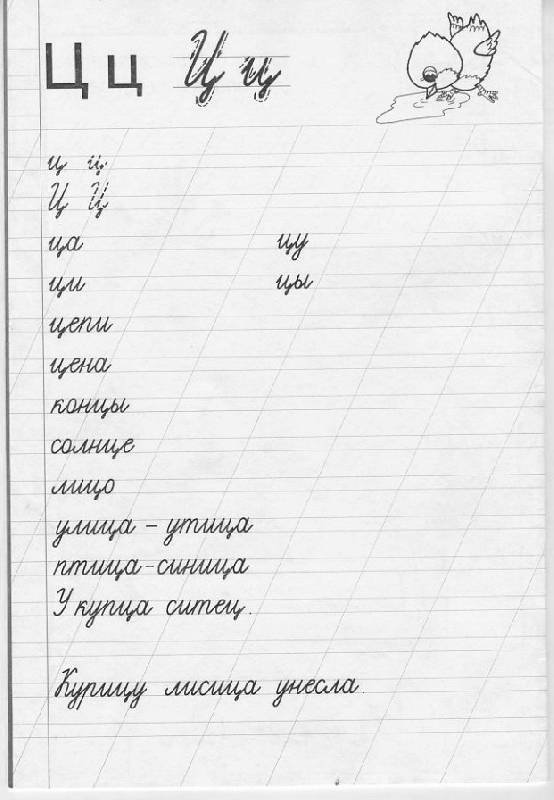 Ц ц Ц ц
ц ц
Ц Ц
ца цу
ци цы
цепи
цена
концы
солнце
лицо
улица - утица
птица - синица
У купца ситец.
Курицу лисица унесла.